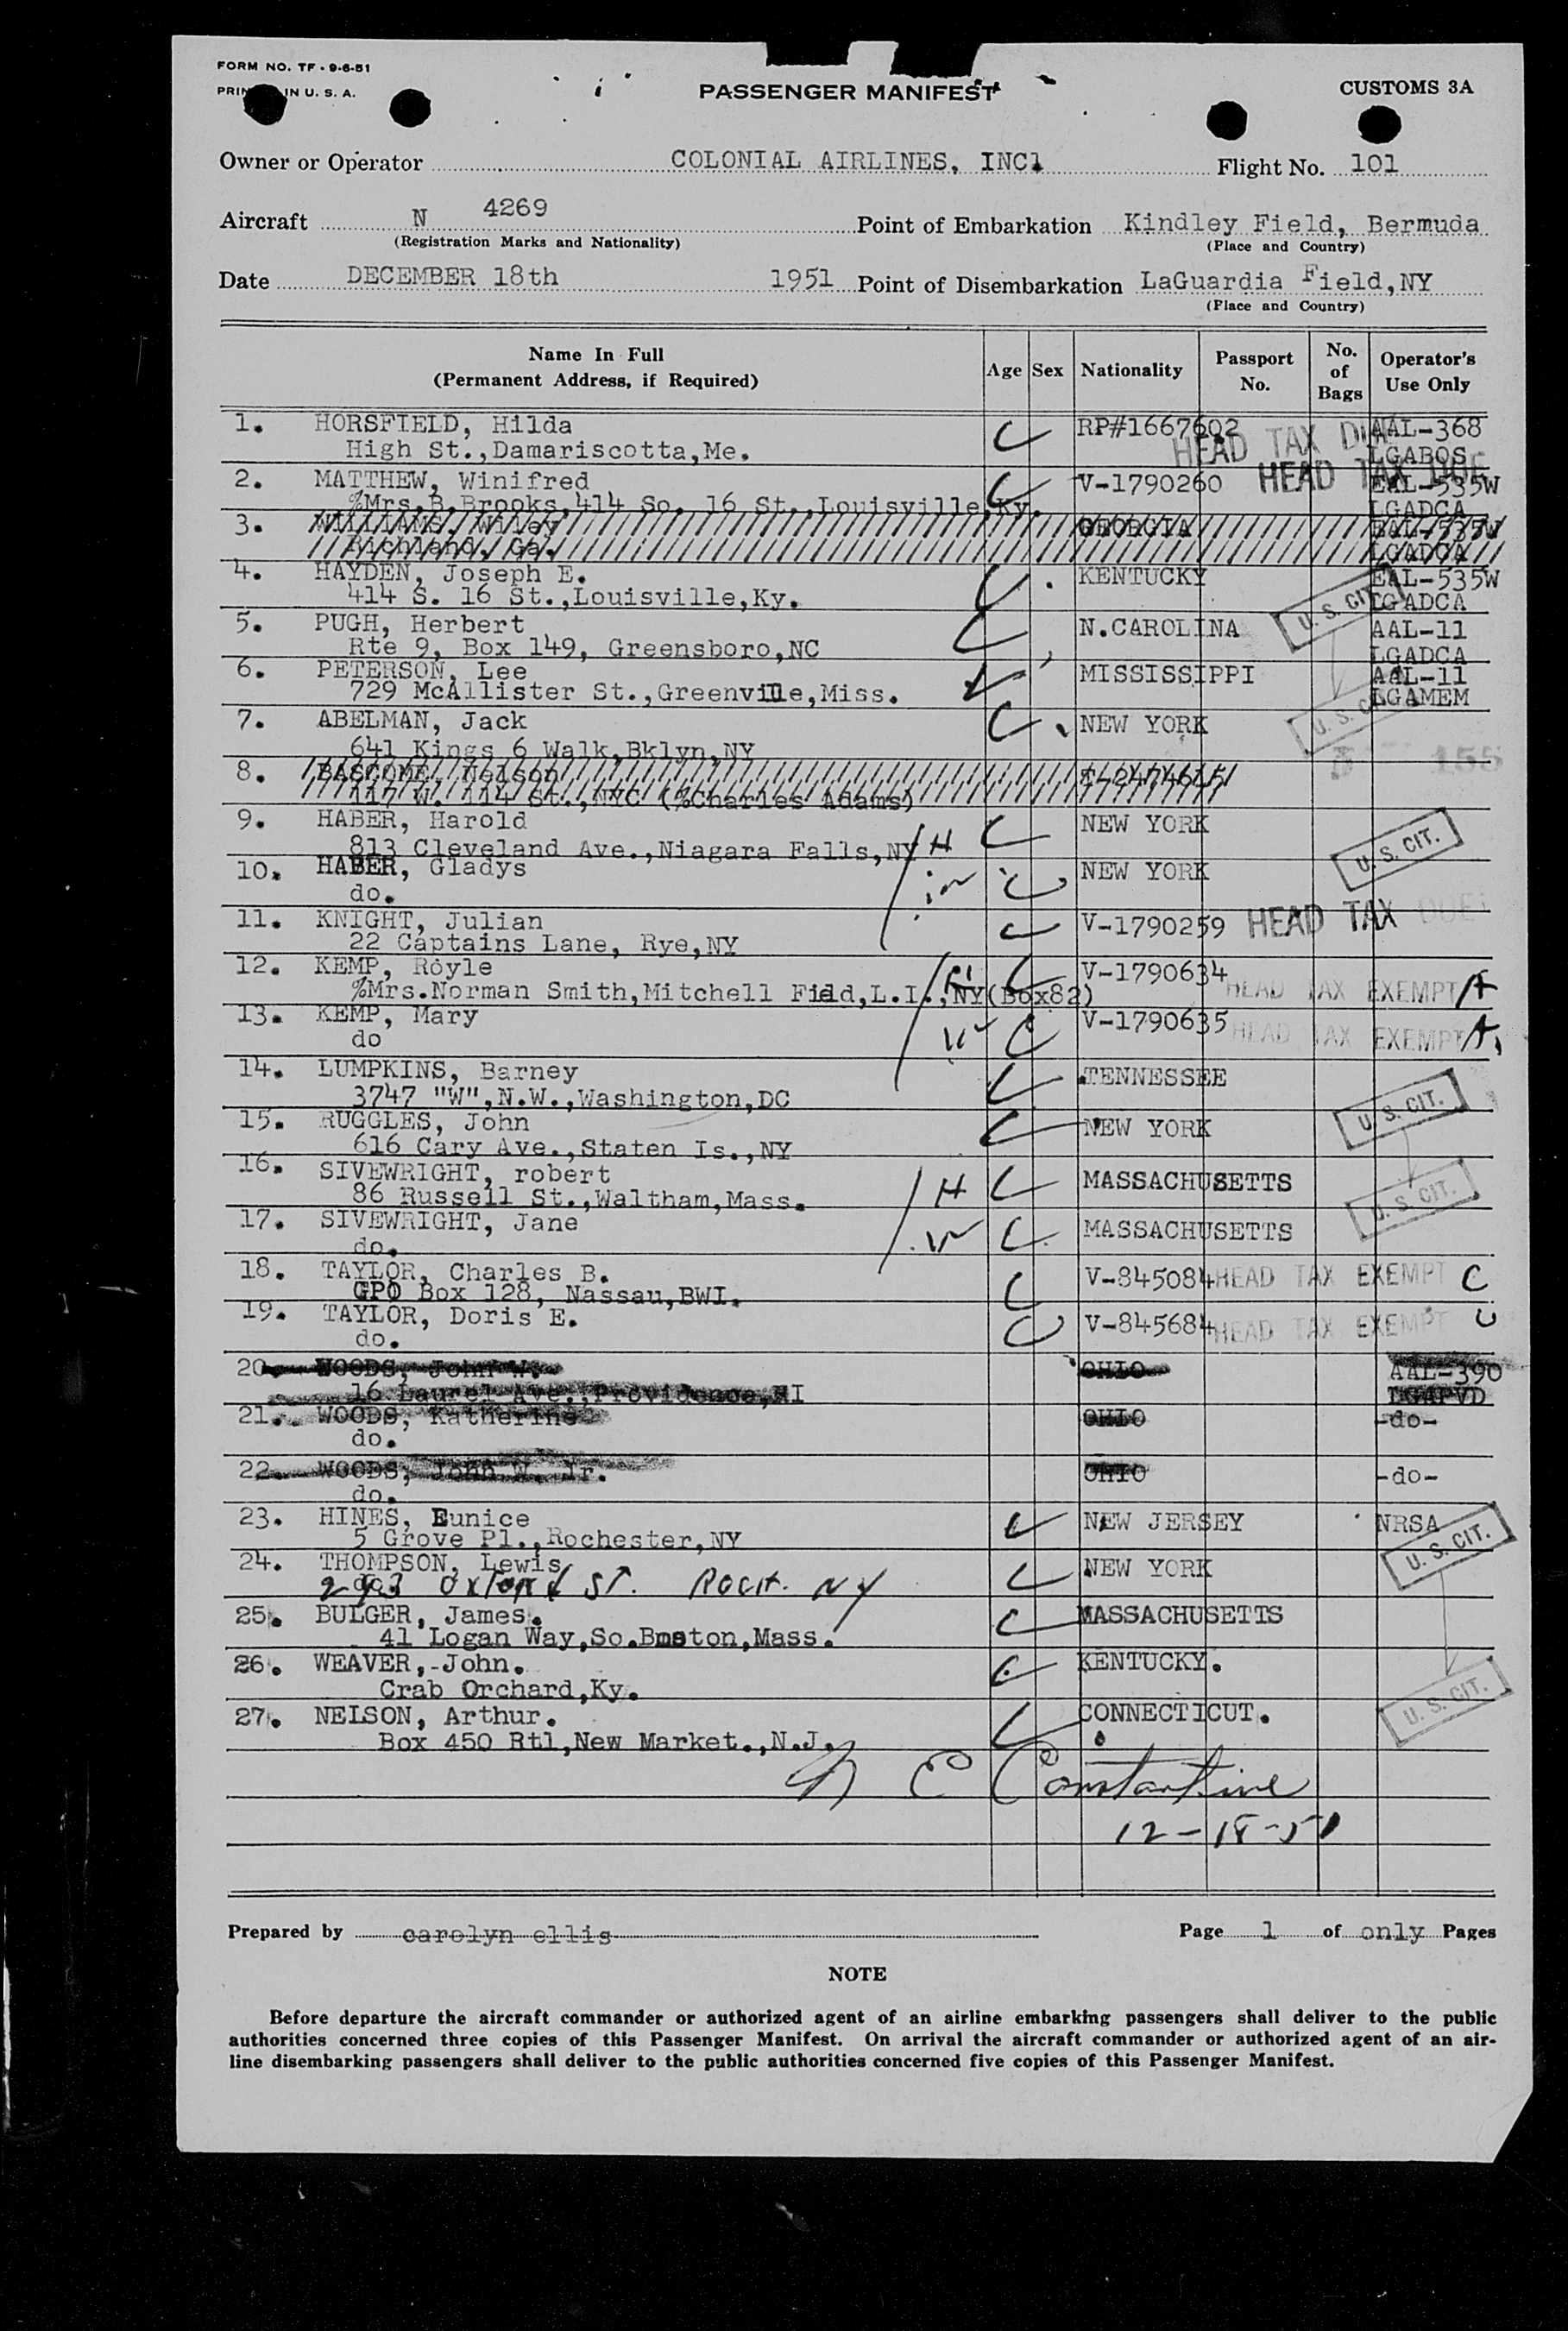 FORM NO. TF - 9-6-51
IN U. S. A.
PASSENGER MANIFEST
CUSTOMS 3A
Owner or Operator COLONIAL AIRLINES, INC1 Flight No. 101
Aircraft N 4269 Point of Embarkation Kindley Field, Bermuda
(Registration Marks and Nationality) (Place and Country)
Date DECEMBER 18th 1951 Point of Disembarkation LaGuardia Field,NY
(Place and Country)
Name In Full (Permanent Address, if Required) Age Sex Nationality Passport No. No. of Bags Operator's Use Only
1. HORSFIELD, Hilda RP#1667602 HEAD TAX DUE AAL-368
High St.,Damariscotta,Me. LGABOS
2. MATTHEW, Winifred V-1790260 HEAD TAX DUE EAL-535W
%Mrs.B.Brooks,414 So. 16 St.,Louisville,Ky. LGADCA
3. WILLIAMS, Wiley GEORGIA EAL-535W
Richland, Ga. LGADCA
4. HAYDEN, Joseph E. KENTUCKY EAL-535W
414 S. 16 St.,Louisville,Ky. U. S. CIT. LGADCA
5. PUGH, Herbert N.CAROLINA AAL-11
Rte 9, Box 149, Greensboro,NC LGADCA
6. PETERSON, Lee MISSISSIPPI AAL-11
729 McAllister St.,Greenville,Miss. LGAMEM
7. ABELMAN, Jack NEW YORK U. S. CIT.
641 Kings 6 Walk,Bklyn,NY
8. BASCOME, Nelson
117 W. 114 St.,NYC (%Charles Adams)
9. HABER, Harold NEW YORK
813 Cleveland Ave.,Niagara Falls,NY H U. S. CIT.
10. HABER, Gladys NEW YORK
do. w
11. KNIGHT, Julian V-1790259 HEAD TAX DUE
22 Captains Lane, Rye,NY
12. KEMP, Royle V-1790634
%Mrs.Norman Smith,Mitchell Field,L.I.,NY(Box82) HEAD TAX EXEMPT A
13. KEMP, Mary V-1790635 HEAD TAX EXEMPT A
do W
14. LUMPKINS, Barney TENNESSEE
3747 "W",N.W.,Washington,DC U. S. CIT.
15. RUGGLES, John NEW YORK
616 Cary Ave.,Staten Is.,NY
16. SIVEWRIGHT, robert MASSACHUSETTS
86 Russell St.,Waltham,Mass. H U. S. CIT.
17. SIVEWRIGHT, Jane MASSACHUSETTS
do. W
18. TAYLOR, Charles B. V-845084 HEAD TAX EXEMPT C
GPO Box 128, Nassau,BWI.
19. TAYLOR, Doris E. V-845684 HEAD TAX EXEMPT C
do.
20. WOODS, John W. OHIO AAL-390
16 Laurel Ave.,Providence,RI LGAPVD
21. WOODS, Katherine OHIO -do-
do.
22. WOODS, John W. Jr. OHIO -do-
do.
23. HINES, Eunice NEW JERSEY NRSA
5 Grove Pl.,Rochester,NY U. S. CIT.
24. THOMPSON, Lewis NEW YORK
do. 293 Oxford ST. ROCH. NY
25. BULGER, James. MASSACHUSETTS
41 Logan Way,So.Boston,Mass.
26. WEAVER,-John. KENTUCKY.
Crab Orchard,Ky. U. S. CIT.
27. NELSON, Arthur. CONNECTICUT.
Box 450 Rt1,New Market.,N.J.
E Constantine
12-18-51
Prepared by carolyn ellis Page 1 of only Pages
NOTE
Before departure the aircraft commander or authorized agent of an airline embarking passengers shall deliver to the public
authorities concerned three copies of this Passenger Manifest. On arrival the aircraft commander or authorized agent of an air-
line disembarking passengers shall deliver to the public authorities concerned five copies of this Passenger Manifest.